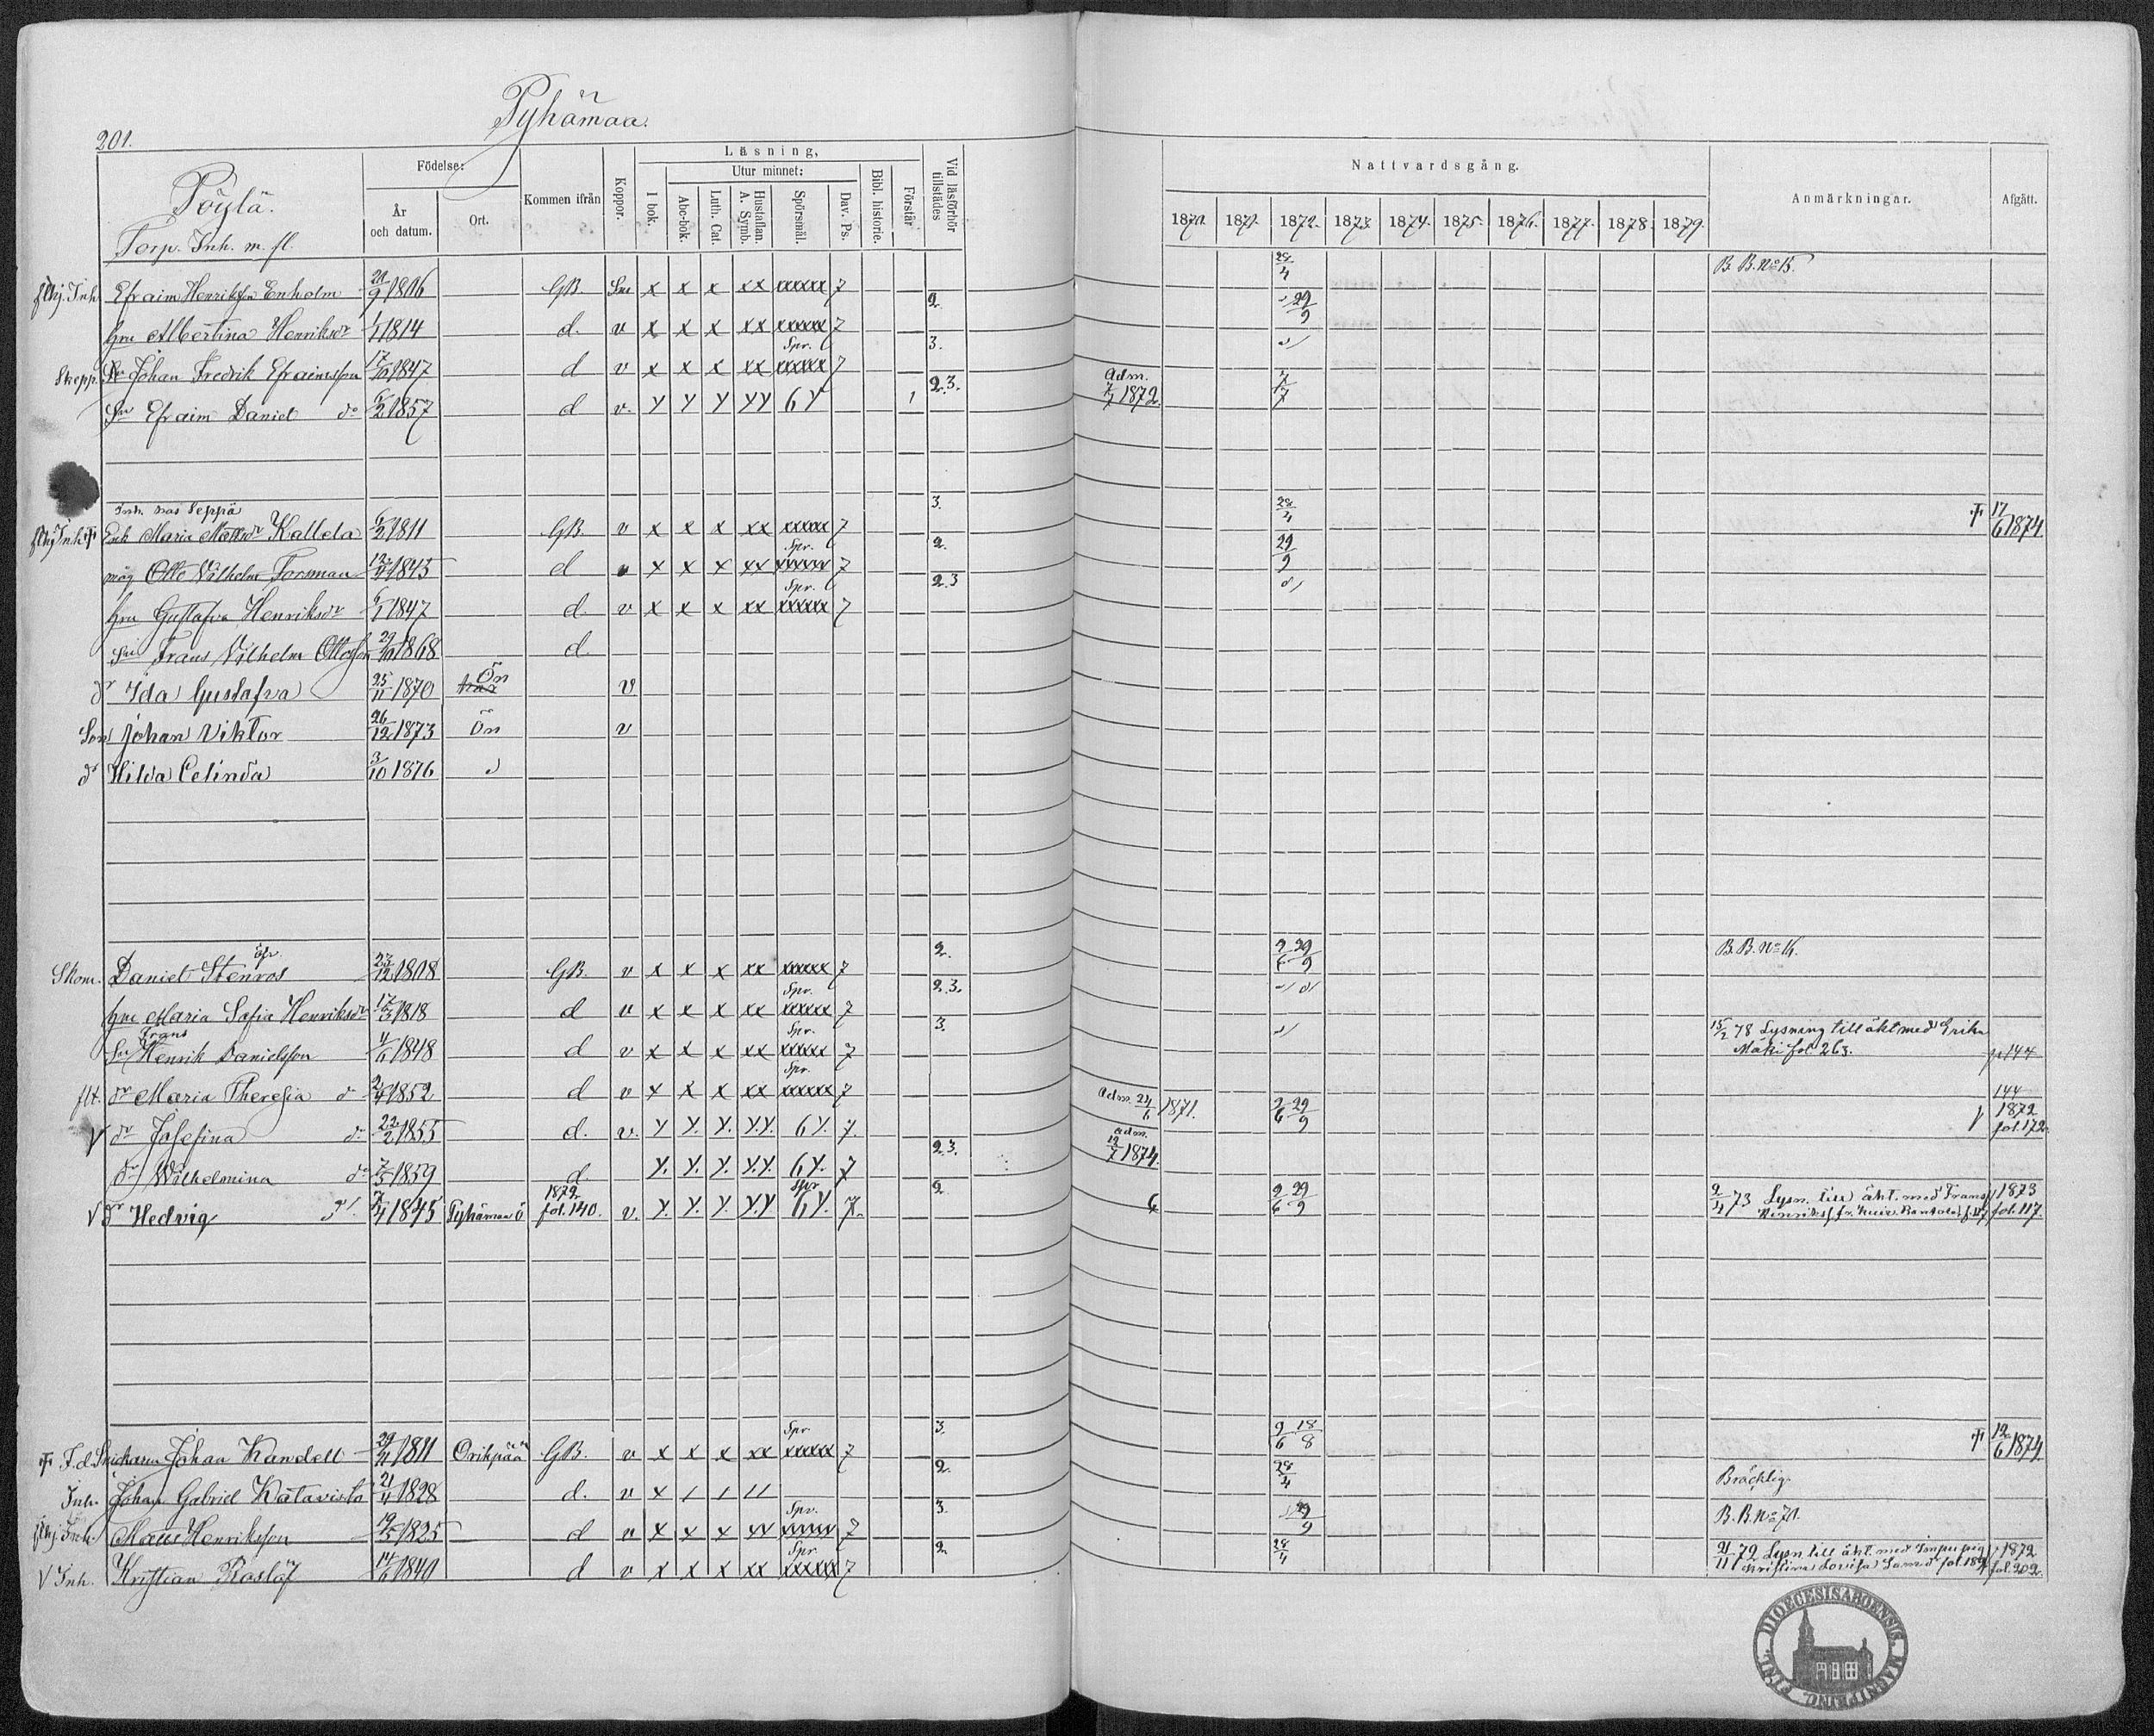 Pyhämaa.
201.
Pöylä.
Torp. Inh. m. fl.
Födelse:
År och datum.
Ort.
Kommen ifrån
Koppor.
Läsning,
I bok.
Utur minnet:
Abc-bok.
Luth. Cat.
Hustaflan. A. Symb.
Spörsmål.
Dav. Ps.
Bibl. historie.
Förstår
Vid läsförhör tillstädes
Nattvardsgång.
1870. 1871. 1872. 1873. 1874. 1875. 1876. 1877. 1878. 1879.
Anmärkningar.
Afgått.
Inh. Efraim Henriksson Enholm 1806 GB. x x x xx xxxxx 7 2. 28/4 29/9 B. B. No 15.
hru Albertina Henriksdr 1814 d. v x x x xx xxxxx 7 3.
Skepp. Sn Johan Fredrik Efraimsson 1847 d v x x x xx Spr. xxxxx 7 2.3.
Sn Efraim Daniel do 1857 d v. y y y yy 6 y 1 Adm. 7/7 1872. 7/7
Inh. hos Seppä
Enk. Maria Kallela 6/2 1811 GB. v x x x xx xxxxx 7 3. 28/4 † 17/6 1874.
måg Otto Vilhelm Forsman 1843 d x x x xx Spr. xxxxx 7 2. 29/9
hru Gustafva Henriksdr 6/1 1847 d. v x x x xx Spr. xxxxx 7 2.3
Sn Frans Vilhelm Ottosson 1868 d.
dr Ida Gustafva 25/11 1870 Ön v
Son Johan Viktor 26/12 1873 Ön v
dr Hilda Celinda 3/10 1876
Skom. Daniel Stenros 23/12 1808 GB. v x x x xx xxxxx 7 2. 2/6 29/9 B. B. No 16.
hru Maria Safia Henriksdr 1818 d v x x x xx Spr. xxxxx 7 2.3.
Frans
Sn Henrik Danielsson 4/6 1848 d v x x x xx Spr. xxxxx 7 3. 15/2 78 Lysning till äkt med Erika Mäki fol. 263. p. 144
flt. dr Maria Theresia do 1852 d v x x x xx Spr. xxxxx 7 Adm. 24/6 1871. 2/6 29/9 144 1872
V dr Josefina do 22/2 1855 d. v. y y. y. y.y. 6 y. 7. Adm. 12/7 1874. fol. 172.
dr Wilhelmina do 1859 d. y. y. y. y.y. 6 y. 7 2.3.
V dr Hedvig 1845 Pyhämaa ö 1872 fol. 140. v. y. y. y. y.y Spr 6 y. 7. 2. 2/6 29/9 2/4 73 Lysn. till äkt. med Frans 1873 fol. 117.
† F. d. Johan Kandell 1811 Orikpää GB. v x x x xx Spr xxxxx 7 3. 9/6 18/8 † 12/6 1874.
Inh. Johan Gabriel Katavisto 21/11 1828 d. v x / / // 2. 28/4 Bräcklig.
Inh. Henriksson 19/5 1825 d v x x x xx Spr. xxxxx 7 3. 29/9 B. B. No 70.
V Inh. Kristian Roslöf 1840 d v x x x xx Spr xxxxx 7 2. 28/4 21/11 72 Lysn till äkt. med Kristina Lovisa fol. 189 1872 fol. 202.
FINL. DIOECESIS ABOENSIS MAGNI PRINC.